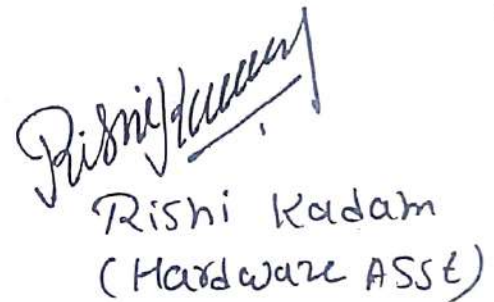 Rishi
Rishi Kadam
(Hardware ASSt)